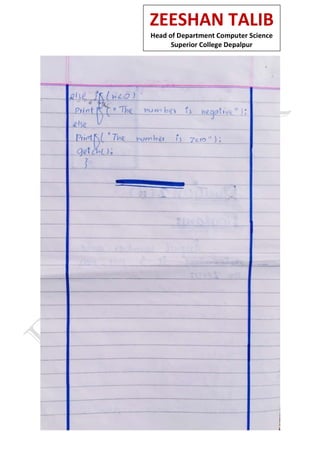 ZEESHAN TALIB
Head of Department Computer Science
Superior College Depalpur
else if (n<0)
Printf("The number is negative");
else
Printf("The number is zero");
getch();
}